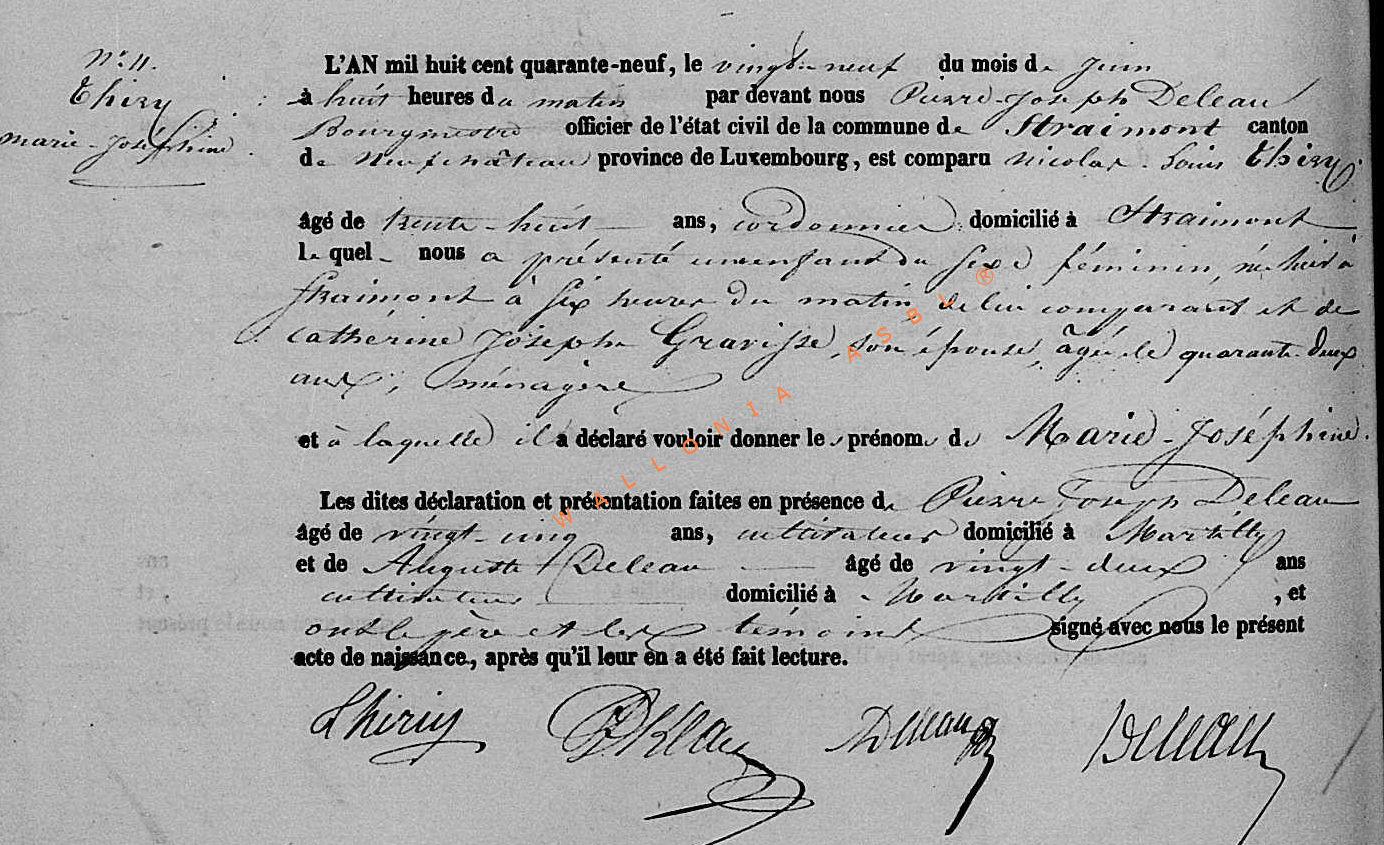 N° 11.
Thiry
Marie-Joséphine
L'AN mil huit cent quarante-neuf, le vingt-neuf du mois de Juin
à huit heures du matin par devant nous Pierre-Joseph Deleau
Bourgmestre officier de l'état civil de la commune de Straimont canton
de Neufchâteau province de Luxembourg, est comparu Nicolas-Louis Thiry
âgé de trente-huit ans, cordonnier domicilié à Straimont
le quel nous a présenté un enfant du sexe féminin, né hier à
Straimont à six heures du matin, de lui comparant et de
Cathérine Joseph Gravisse, son épouse, âgée de quarante-deux
ans, ménagère
et à laquelle il a déclaré vouloir donner les prénoms de Marie-Joséphine.
Les dites déclaration et présentation faites en présence de Pierre Joseph Deleau
âgé de vingt-cinq ans, cultivateur domicilié à Martilly
et de Auguste Deleau âgé de vingt-deux ans
cultivateur domicilié à Martilly, et
ont le père et les témoins signé avec nous le présent
acte de naissance, après qu'il leur en a été fait lecture.
Thiriy Deleau
ADeleau Deleau
WALLONIA ASBL ®